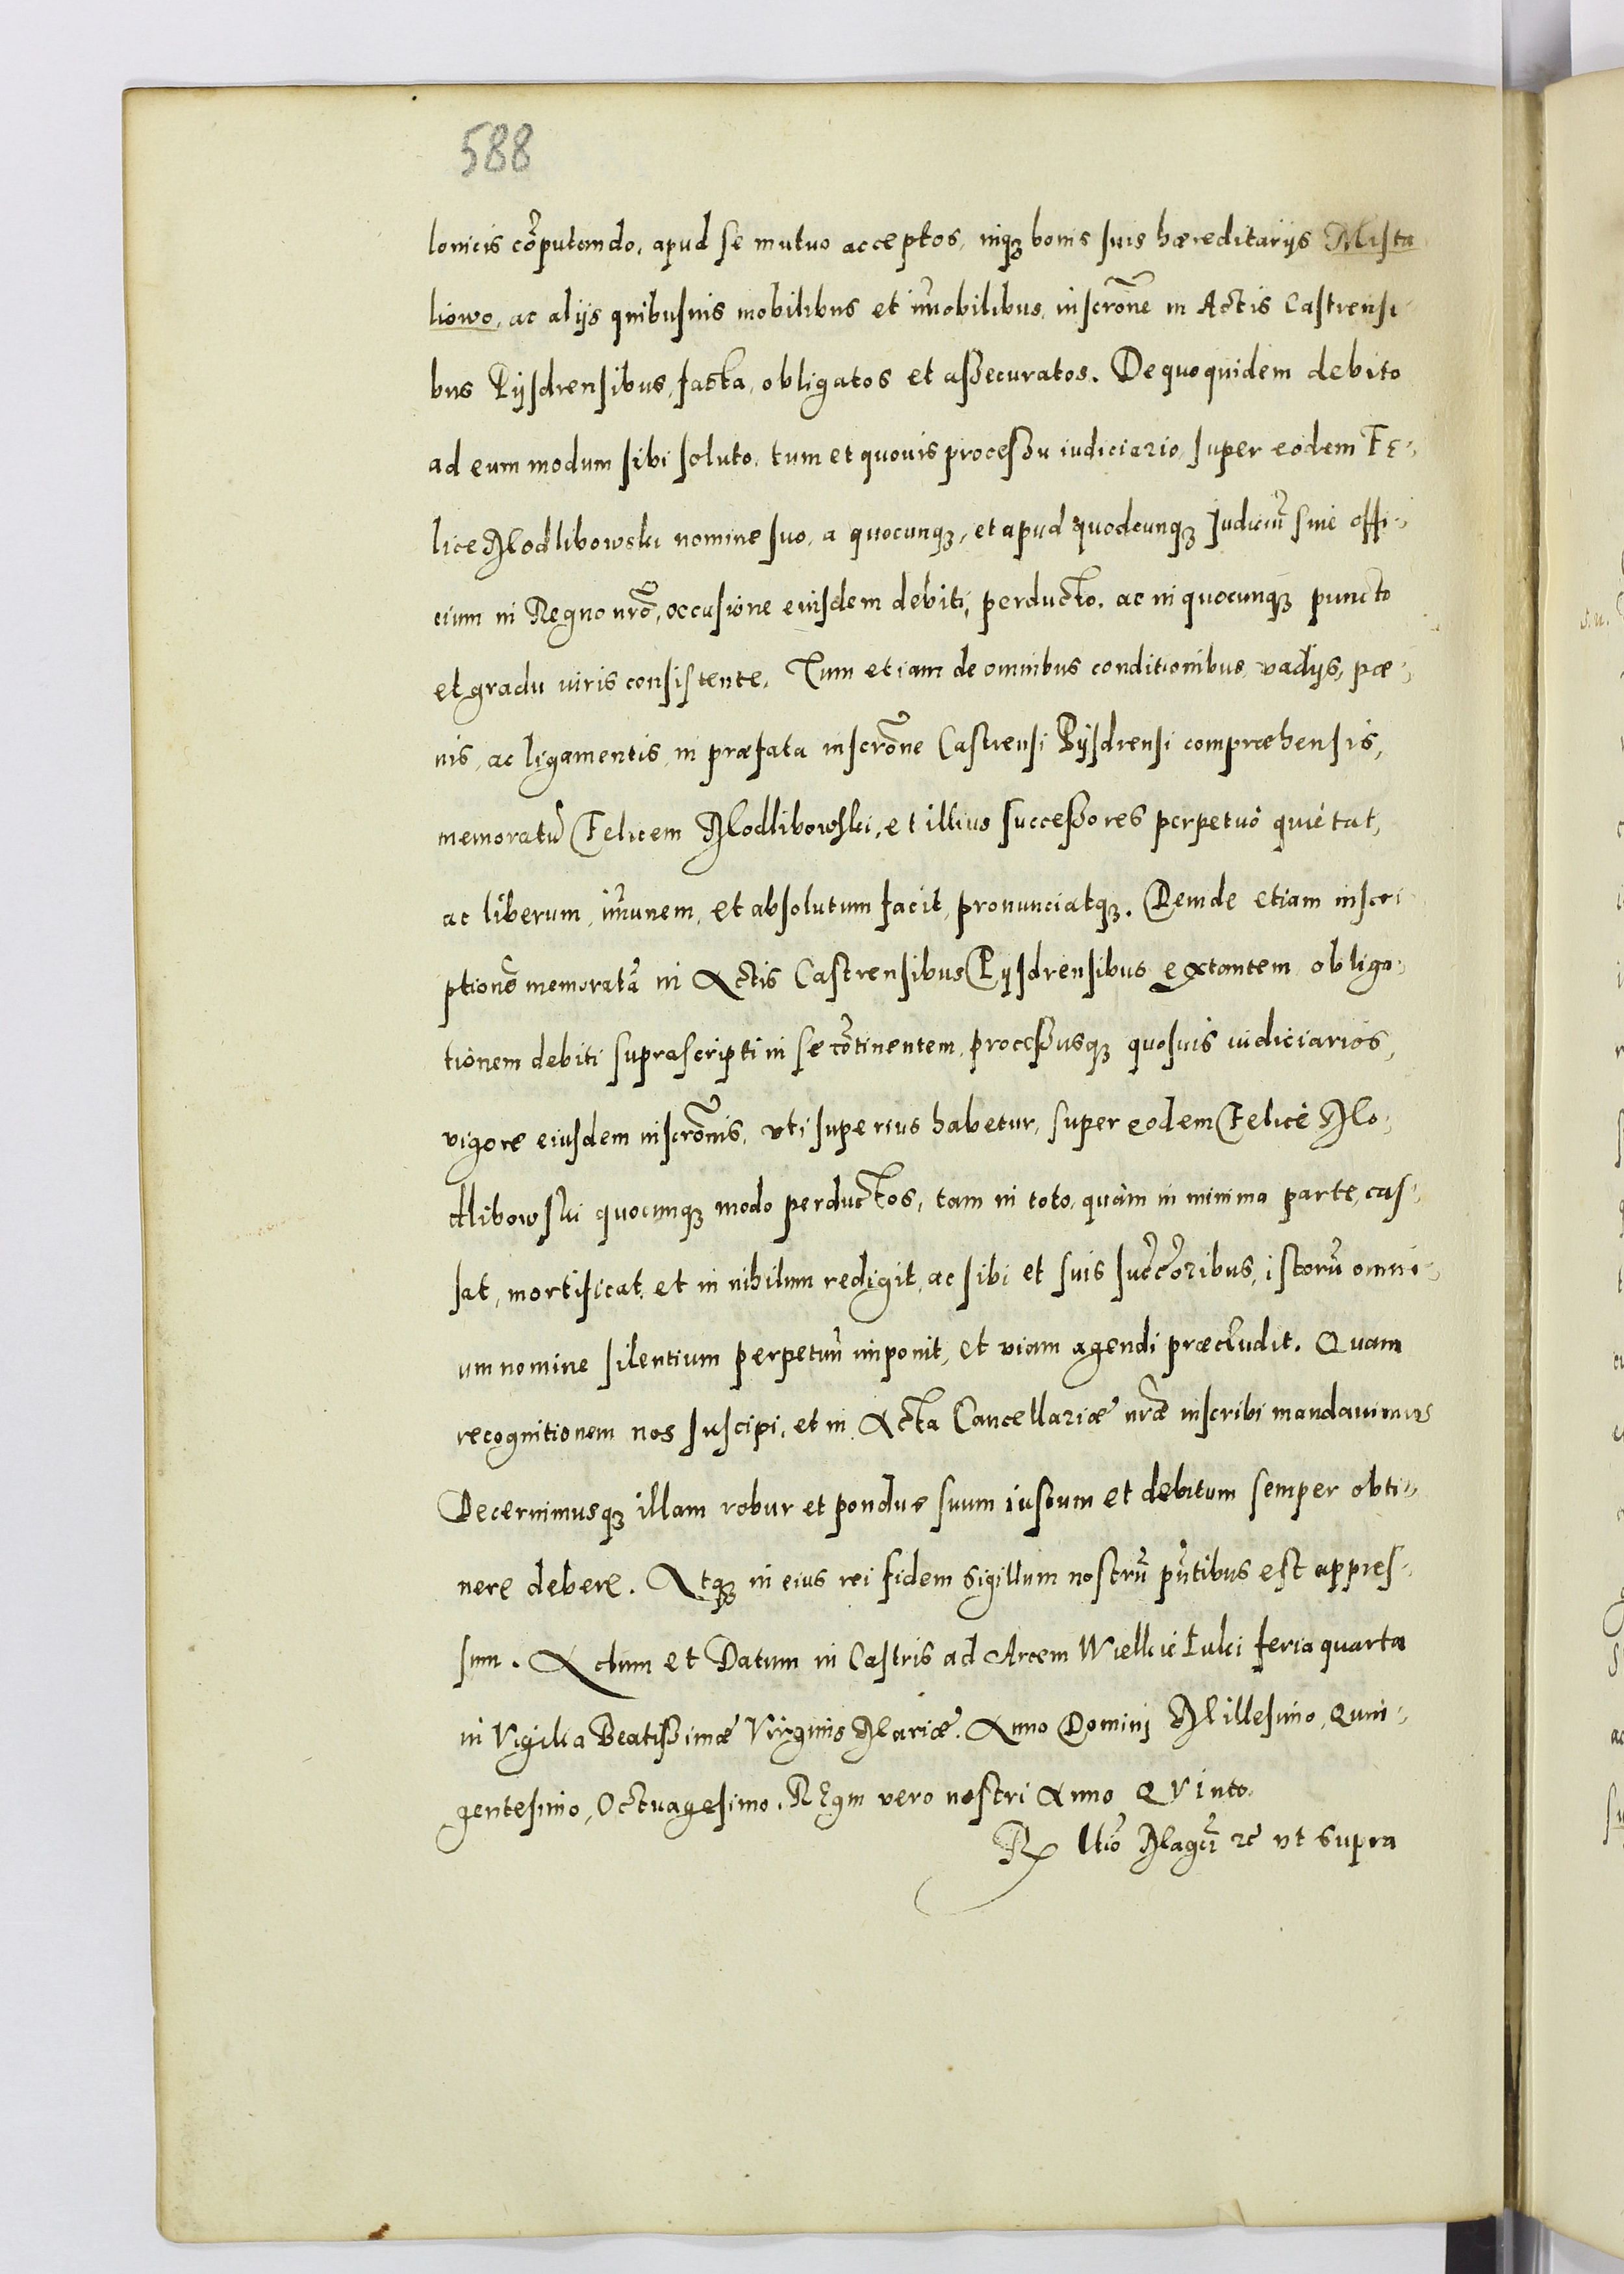 588
lonicis cõputando, apud se mutuo acceptos, inqꝫ bonis suis hæreditarijs Mista
kowo, ac alijs quibusuis mobilibus et im̃obilibus, inscrõne in Actis Castrensi
bus Pijsdrensibus, facta, obligatos et assecuratos. De quo quidem debito
ad eum modum sibi soluto, tum et quouis processu iudiciario, super eodem Fe-
lice Modlibowski nomine suo, a quocunqꝫ, et apud quodcunqꝫ Judiciũ siue offi-
cium in Regno nrõ, occasione eiusdem debiti, perducto, ac in quocunqꝫ puncto
et gradu iuris consistente. Tum etiam de omnibus conditionibus, vadijs, pœ-
nis, ac ligamentis, in præfata inscrõne Castrensi Pijsdrensi compræhensis,
memoratũ Felicem Modlibowski, et illius successores perpetuò quietat,
ac liberum, im̃unem, et absolutum facit, pronunciatqꝫ. Deinde etiam inscri
ptionẽ memoratã in Actis Castrensibus Pijsdrensibus extantem, obliga-
tionem debiti suprascripti in se cõtinentem, processusqꝫ quosuis iudiciarios,
vigore eiusdem inscrõnis, vti superius habetur, super eodem Felice Mo-
dlibowski quocunqꝫ modo perductos, tam in toto, quàm in minima parte, cas-
sat, mortificat, et in nihilum redigit, ac sibi et suis succ̃oribus, istorũ omni-
um nomine silentium perpetuũ imponit, et viam agendi præcludit. Quam
recognitionem nos suscipi, et in Acta Cancellariæ nræ̃ inscribi mandauimus
Decernimusqꝫ illam robur et pondus suum iustum et debitum semper obti-
nere debere. Atqꝫ in eius rei fidem sigillum nostrũ pñtibus est appres-
sum. Actum et Datum in Castris ad Arcem Wielkie Łuki feria quarta
in Vigilia Beatissimæ Virginis Mariæ. Anno Domini Millesimo, Quin-
gentesimo, Octuagesimo. Regni vero nostri Anno Qvinto.
Rō Magci ꝛc̃ vt supra